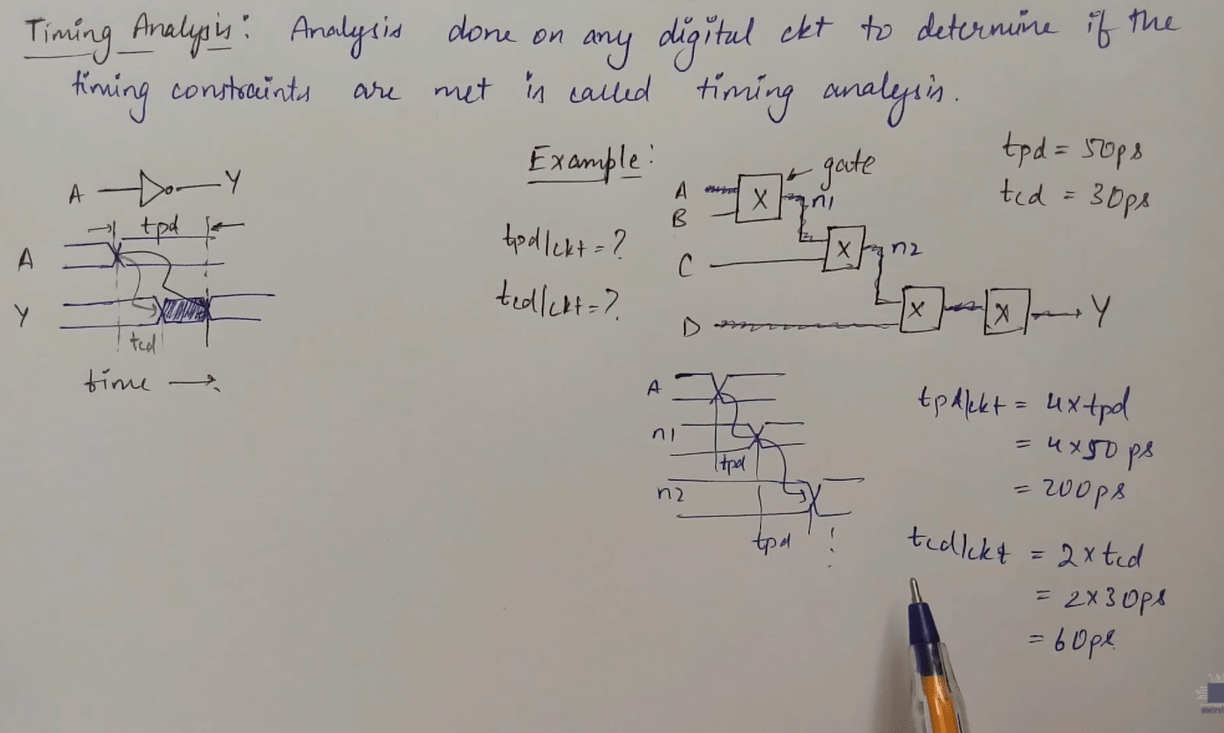 Timing Analysis: Analysis done on any digital ckt to determine if the
timing constraints are met is called timing analysis.
A Y
tpd
A
Y
tcd
time →
Example:
tpd|ckt = ?
tcd|ckt = ?
A
B
C
D
X
gate
n1
X
n2
X
X
Y
tpd = 50ps
tcd = 30ps
A
n1
tpd
n2
tpd
tpd|ckt = 4xtpd
= 4x50ps
= 200ps
tcd|ckt = 2xtcd
= 2x30ps
= 60ps